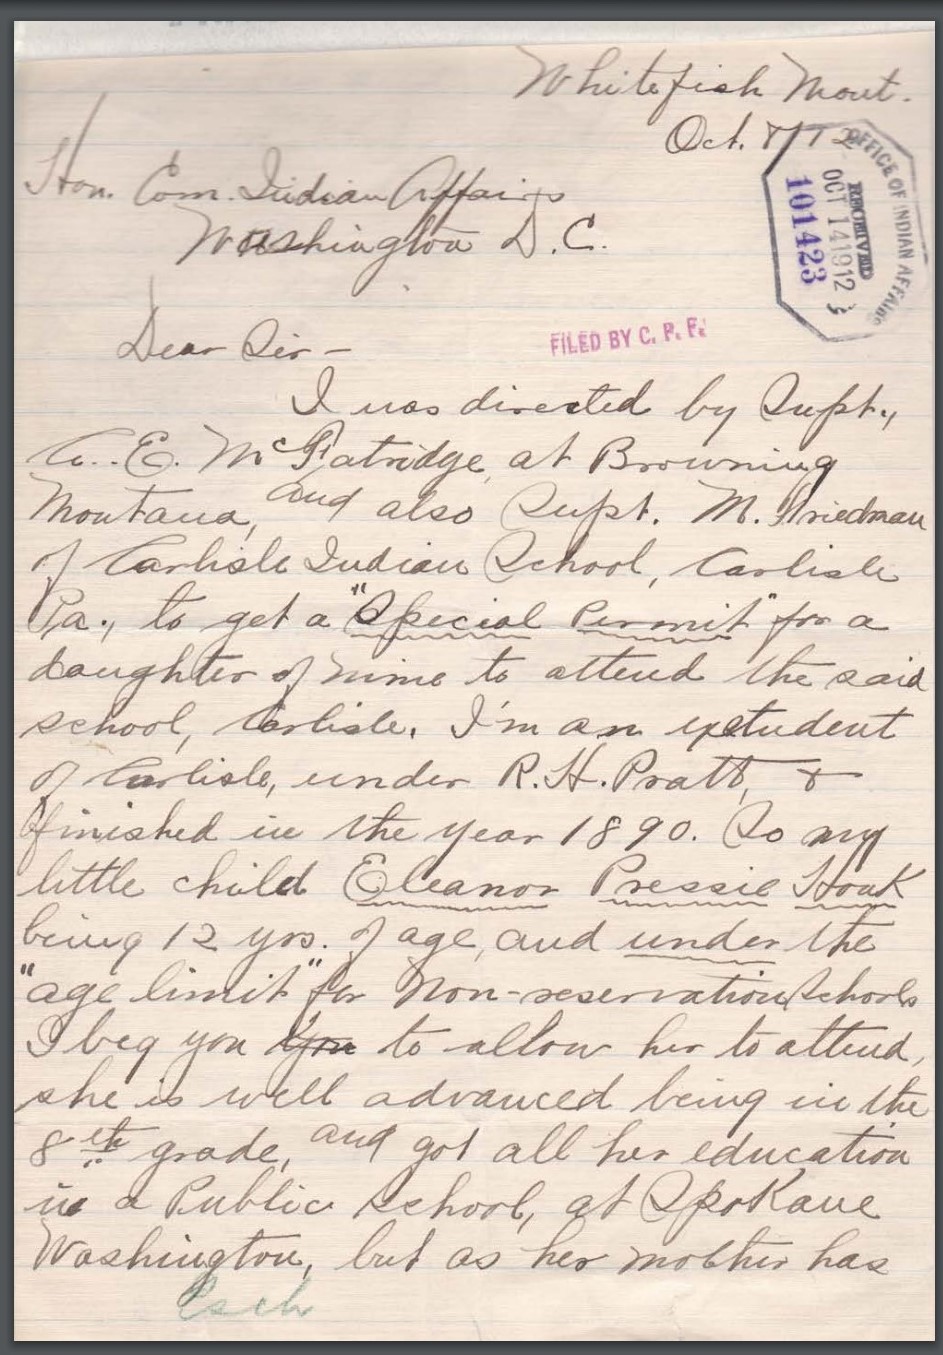 Whitefish Mont.
Oct. 8/12
OFFICE OF INDIAN AFFAIRS
RECEIVED
OCT 14 1912
101423
Hon. Com. Indian Affairs
Washington D.C.
FILED BY C. P. F.
Dear Sir-
I was directed by Supt.,
A. E. McFatridge, at Browning
Montana, and also Supt. M. Friedman
of Carlisle Indian School, Carlisle
Pa., to get a "Special Permit" for a
daughter of mine to attend the said
school, Carlisle. I'm an exstudent
of Carlisle, under R.H. Pratt, &
finished in the year 1890. So my
little child Eleanor Pressie Houk
being 12 yrs. of age, and under the
"age limit" for Non-reservation Schools
I beg you you to allow her to attend,
she is well advanced being in the
8th grade, and got all her education
in a Public School, at Spokane
Washington, but as her mother has